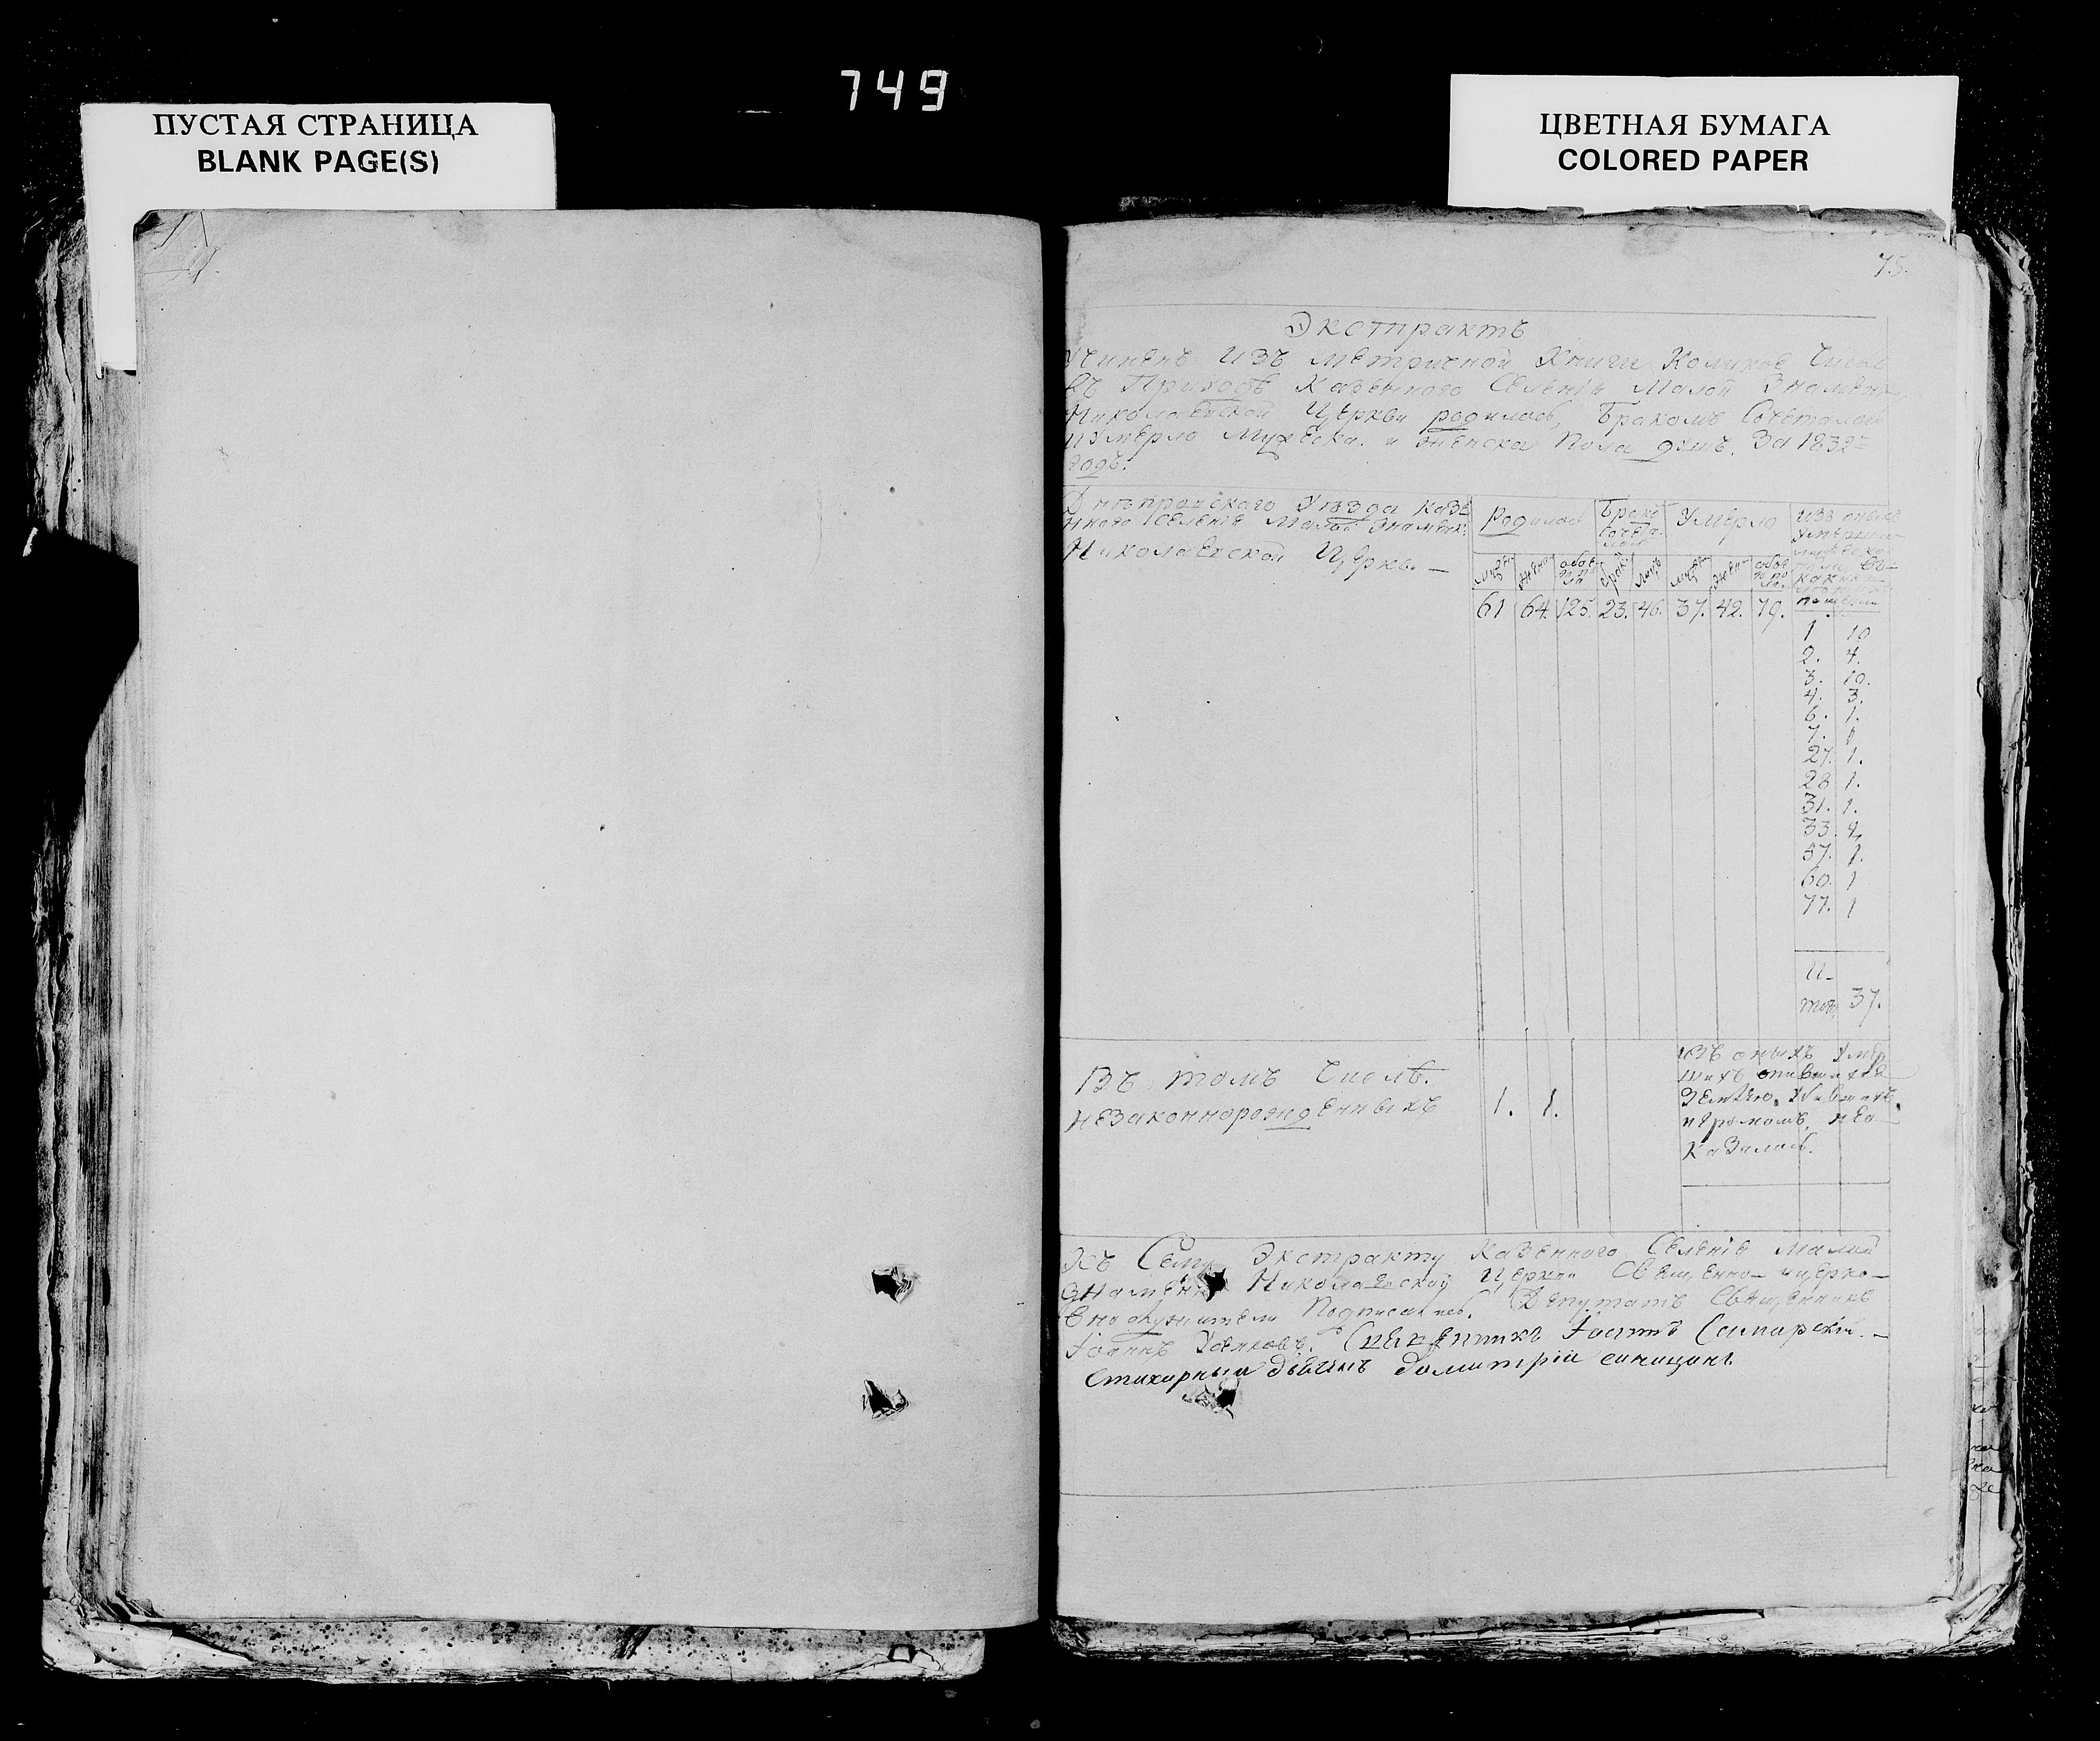 749
ПУСТАЯ СТРАНИЦА
BLANK PAGE(S)
ЦВЕТНАЯ БУМАГА
COLORED PAPER
75.
Экстрактъ
Учиненъ изъ метричной Книги Коликое Число
въ Приходе казенного Селенія Малой Знаменки
Николаевской Церкви родилось, Бракомъ Сочеталось
и умерло Мужеска. и женска Пола душъ. За 1832
годъ.
Днепровского Уезда Казе
нного Селенія Малой Знаменки
Николаевской Церкви —
Родилось
Брако
сочета
лось
Умерло
изъ оныхъ
умершихъ
мужеска
61 64. 125. 23. 46. 37. 42. 79.
1 10
2. 4.
3. 10.
4. 3.
6. 1.
7. 1
27. 1.
28 1.
31. 1.
33. 2,
57. 1.
60. 1
77. 1
И-
того 37.
Въ томъ Числе.
незаконнорожденныхъ
1. 1.
изъ оныхъ умер
шихъ опившихся
Землею. Убившихъ.
и громомъ, нео
Казалось.
Къ Сему Экстракту Казенного Селенія Малой
Знаменки Николаевской Церкви Священно- и церко-
вно служители Подписались. Депутатъ Священникъ
Іоаннъ
Священникъ Іоаннъ Самарскій. —
Стихарный дьячокъ Димитрій синицинъ